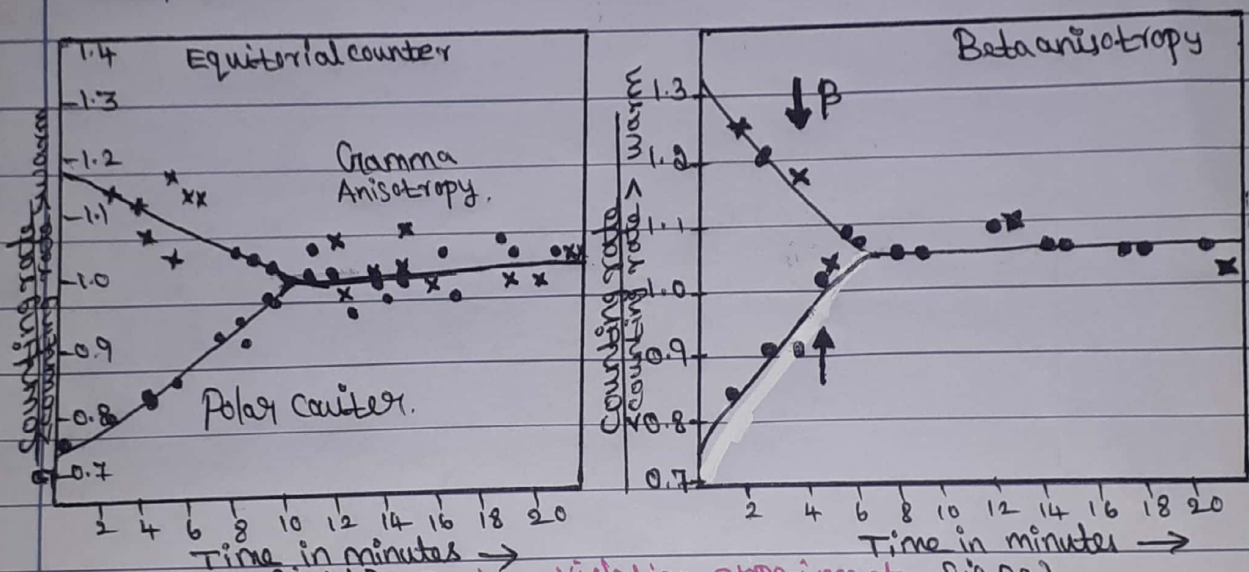 1.4
Equitorial counter
1.3
1.2
1.1
1.0
0.9
0.8
0.7
Gramma
Anisotropy.
Polar couiter.
Counting rate
<counting rate> warm
2 4 6 8 10 12 14 16 18 20
Time in minutes →
Beta anisotropy
1.3
1.2
1.1
1.0
0.9
0.8
0.7
↓ β
Counting rate
<counting rate> warm
2 4 6 8 10 12 14 16 18 20
Time in minutes →